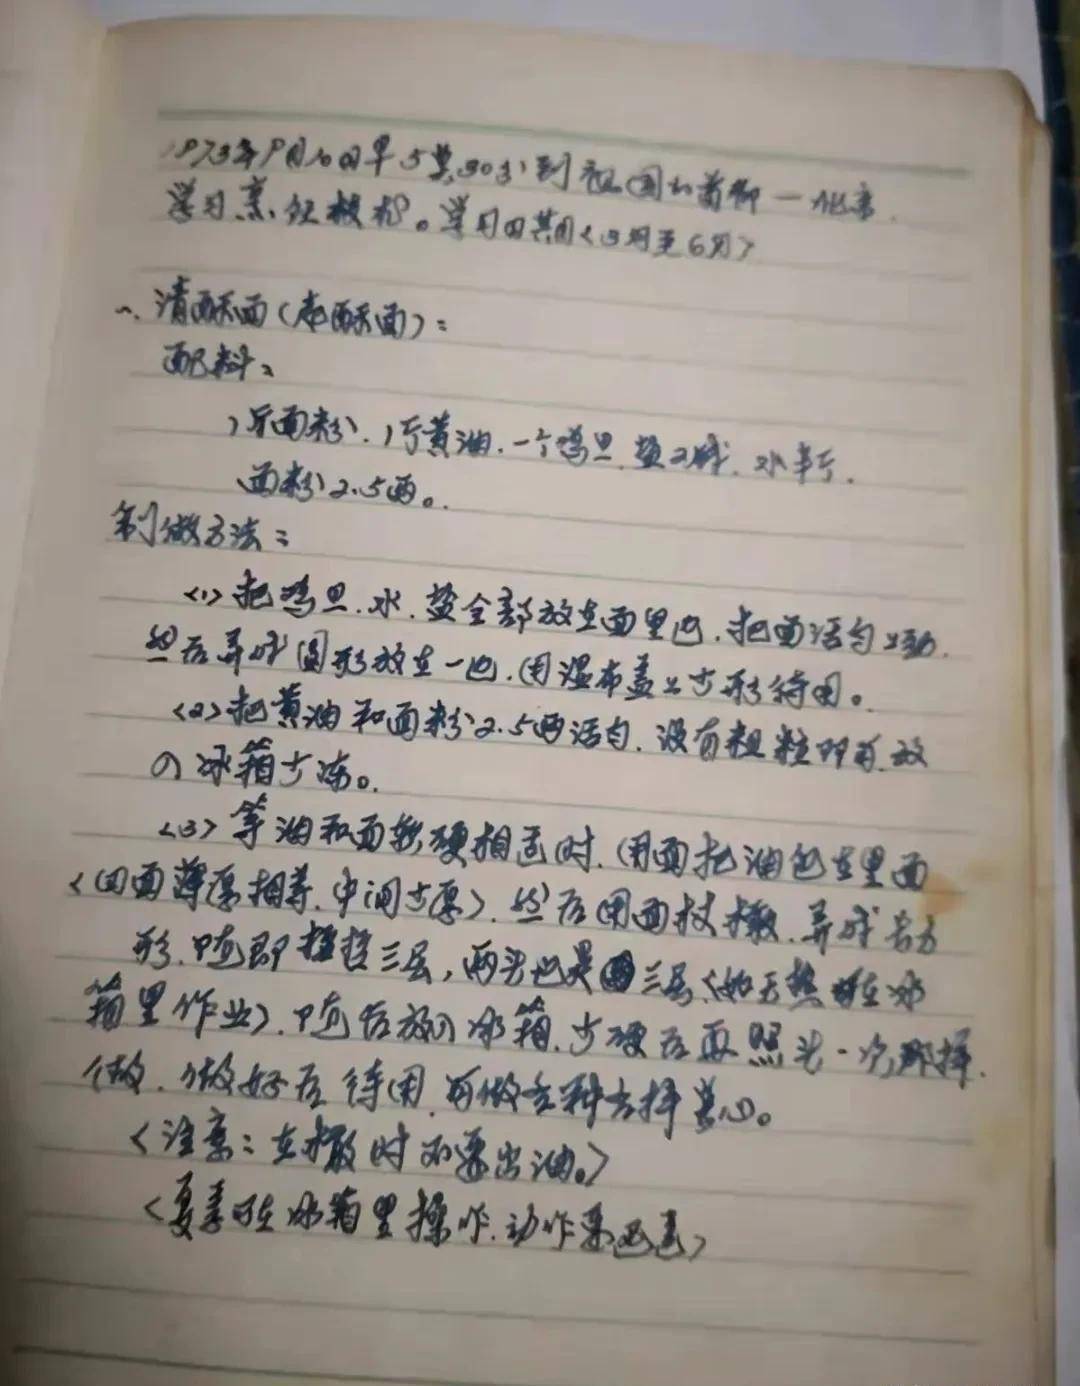 1973年9月10日早5点30分到祖国的首都—北京.
学习烹饪技术。学习日期<3月至6月>
一、清酥面(起酥面):
配料:
1斤面粉.1斤黄油.一个鸡旦.盐2钱.水半斤.
面粉2.5两。
制做方法:
<1>把鸡旦.水.盐全部放在面里边.把面活匀
然后弄成圆形放在一边.用湿布盖上待用。
<2>把黄油和面粉2.5两活匀.没有粗粒即可.放
入冰箱冷冻。
<3>等油和面软硬相适时.用面把油包在里面
<四面薄厚相等.中间厚>.然后用面杖擀.弄成长方
形.随即摺三层,两头也是三层<如天热可在冰
箱里作业>.随后放入冰箱.硬后再照头一次那样
做.做好后待用.可做各种点心。
<注意:在擀时不要出油。>
<夏季可在冰箱里操作.动作要迅速>